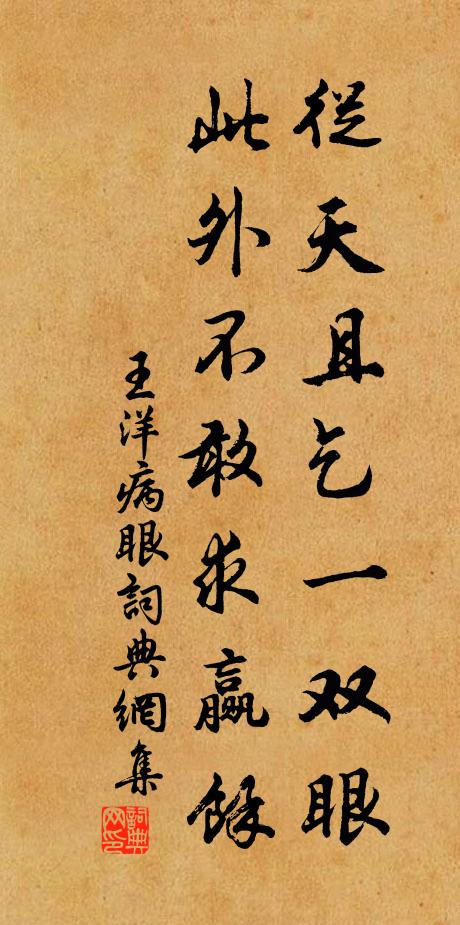 從天且乞一双眼
此外不敢求贏餘
王洋病眼詞典網集
詞典網印